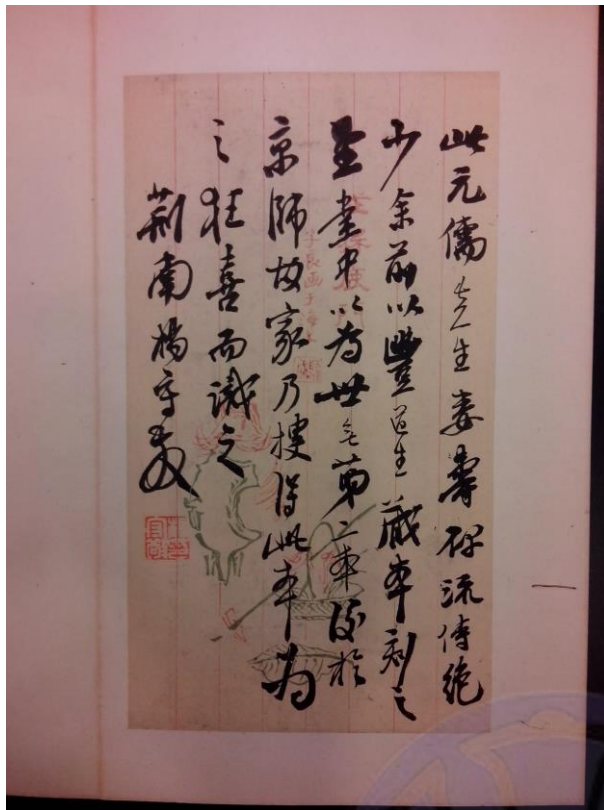 此元儒先生婁壽碑流傳絕
少余前以豐道生藏本刻之
望堂中以為世无第二本後於
京師故家乃搜得此本為
之狂喜而識之
荊南楊守敬